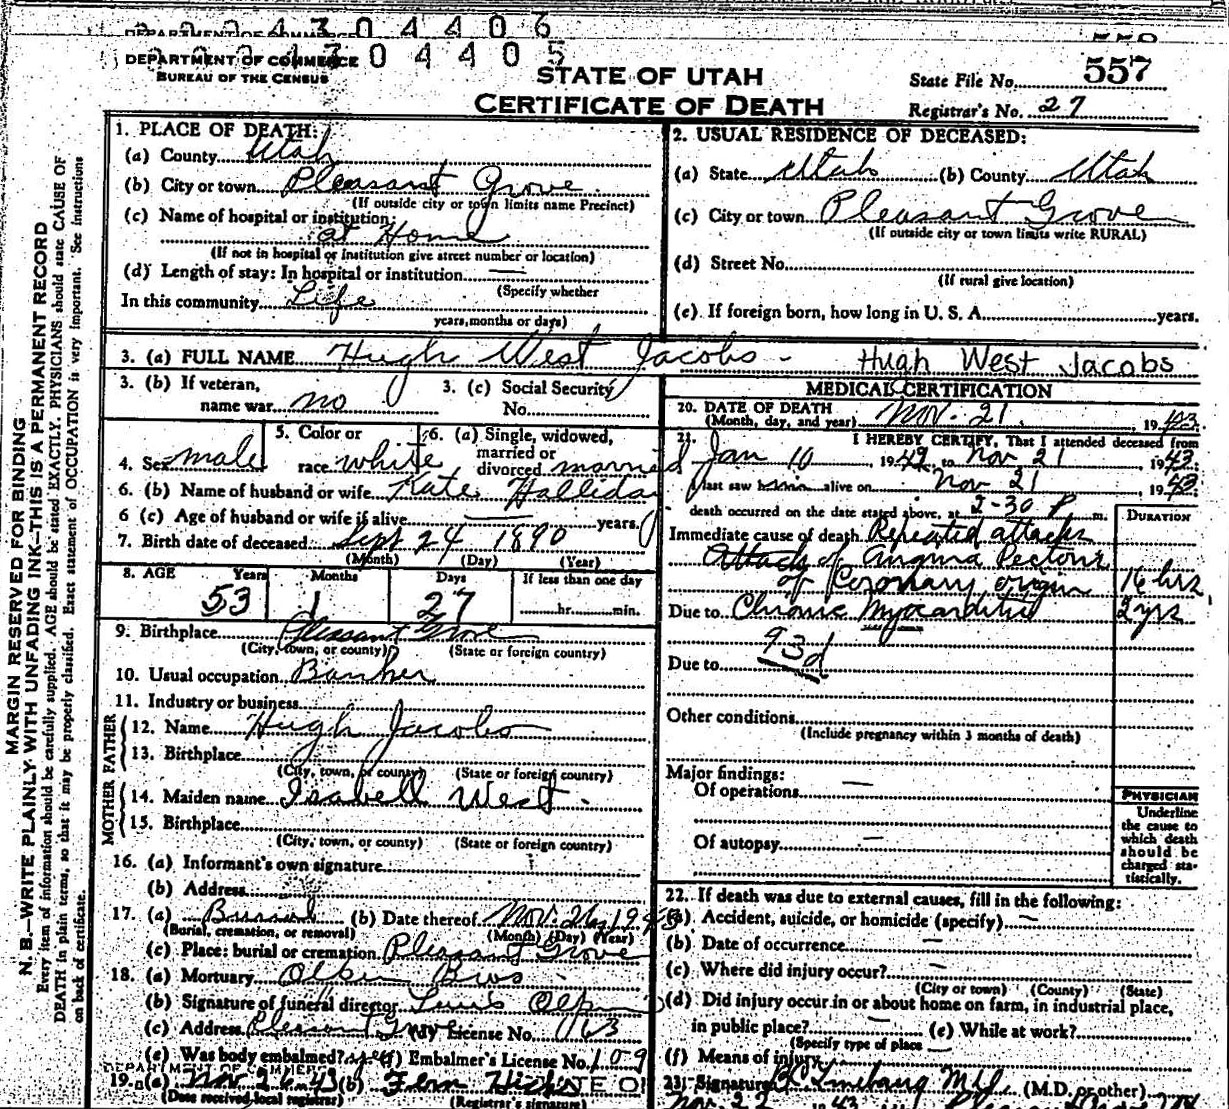 2 2 4 3 0 4 4 0 6
DEPARTMENT OF COMMERCE
0 4 4 0 5
BUREAU OF THE CENSUS
STATE OF UTAH
CERTIFICATE OF DEATH
State File No. 557
Registrar's No. 27
MARGIN RESERVED FOR BINDING
N. B.—WRITE PLAINLY WITH UNFADING INK—THIS IS A PERMANENT RECORD
Every item of information should be carefully supplied. AGE should be stated EXACTLY. PHYSICIANS should state CAUSE OF
DEATH in plain terms, so that it may be properly classified. Exact statement of OCCUPATION is very important. See instructions
on back of certificate.
1. PLACE OF DEATH:
(a) County Utah
(b) City or town Pleasant Grove
(If outside city or town limits name Precinct)
(c) Name of hospital or institution:
at Home
(If not in hospital or institution give street number or location)
(d) Length of stay: In hospital or institution —
(Specify whether
In this community Life
years, months or days)
2. USUAL RESIDENCE OF DECEASED:
(a) State Utah (b) County Utah
(c) City or town Pleasant Grove
(If outside city or town limits write RURAL)
(d) Street No.
(If rural give location)
(e) If foreign born, how long in U. S. A. years.
3. (a) FULL NAME Hugh West Jacobs - Hugh West Jacobs
3. (b) If veteran,
name war no
3. (c) Social Security
No.
4. Sex male
5. Color or
race white
6. (a) Single, widowed,
married or
divorced married
6. (b) Name of husband or wife Kate Halliday
6 (c) Age of husband or wife if alive — years.
7. Birth date of deceased Sept 24 1890
(Month) (Day) (Year)
8. AGE Years Months Days If less than one day
53 1 27 hr. min.
9. Birthplace Pleasant Grove
(City, town, or county) (State or foreign country)
10. Usual occupation Banker
11. Industry or business
FATHER
12. Name Hugh Jacobs
13. Birthplace
(City, town, or county) (State or foreign country)
MOTHER
14. Maiden name Isabell West
15. Birthplace
(City, town, or county) (State or foreign country)
16. (a) Informant's own signature
(b) Address
17. (a) Burial (b) Date thereof Nov. 26, 1943
(Burial, cremation, or removal) (Month) (Day) (Year)
(c) Place: burial or cremation Pleasant Grove
18. (a) Mortuary Olpin Bros
(b) Signature of funeral director Olpin
(c) Address Pleasant Grove (d) License No. 1163
(e) Was body embalmed? yes (f) Embalmer's License No. 109
19. (a) Nov 26 43 (b) Fern
(Date received local registrar) (Registrar's signature)
MEDICAL CERTIFICATION
20. DATE OF DEATH
(Month, day, and year) Nov. 21, 1943
21. I HEREBY CERTIFY, That I attended deceased from
Jan 10 1942, to Nov 21 1943
I last saw him alive on Nov 21 1943
death occurred on the date stated above, at 2-30 P. m.
DURATION
Immediate cause of death Repeated attacks
Attacks of Angina Pectoris
of Coronary origin 16 hrs.
Due to Chronic Myocarditis 2 yrs
93d
Due to
Other conditions
(Include pregnancy within 3 months of death)
Major findings:
Of operations —
Of autopsy —
PHYSICIAN
Underline
the cause to
which death
should be
charged sta-
tistically.
22. If death was due to external causes, fill in the following:
(a) Accident, suicide, or homicide (specify) —
(b) Date of occurrence —
(c) Where did injury occur? —
(City or town) (County) (State)
(d) Did injury occur in or about home on farm, in industrial place,
in public place? — (e) While at work?
(Specify type of place)
(f) Means of injury
23. Signature (M.D. or other)
Nov. 22 1943